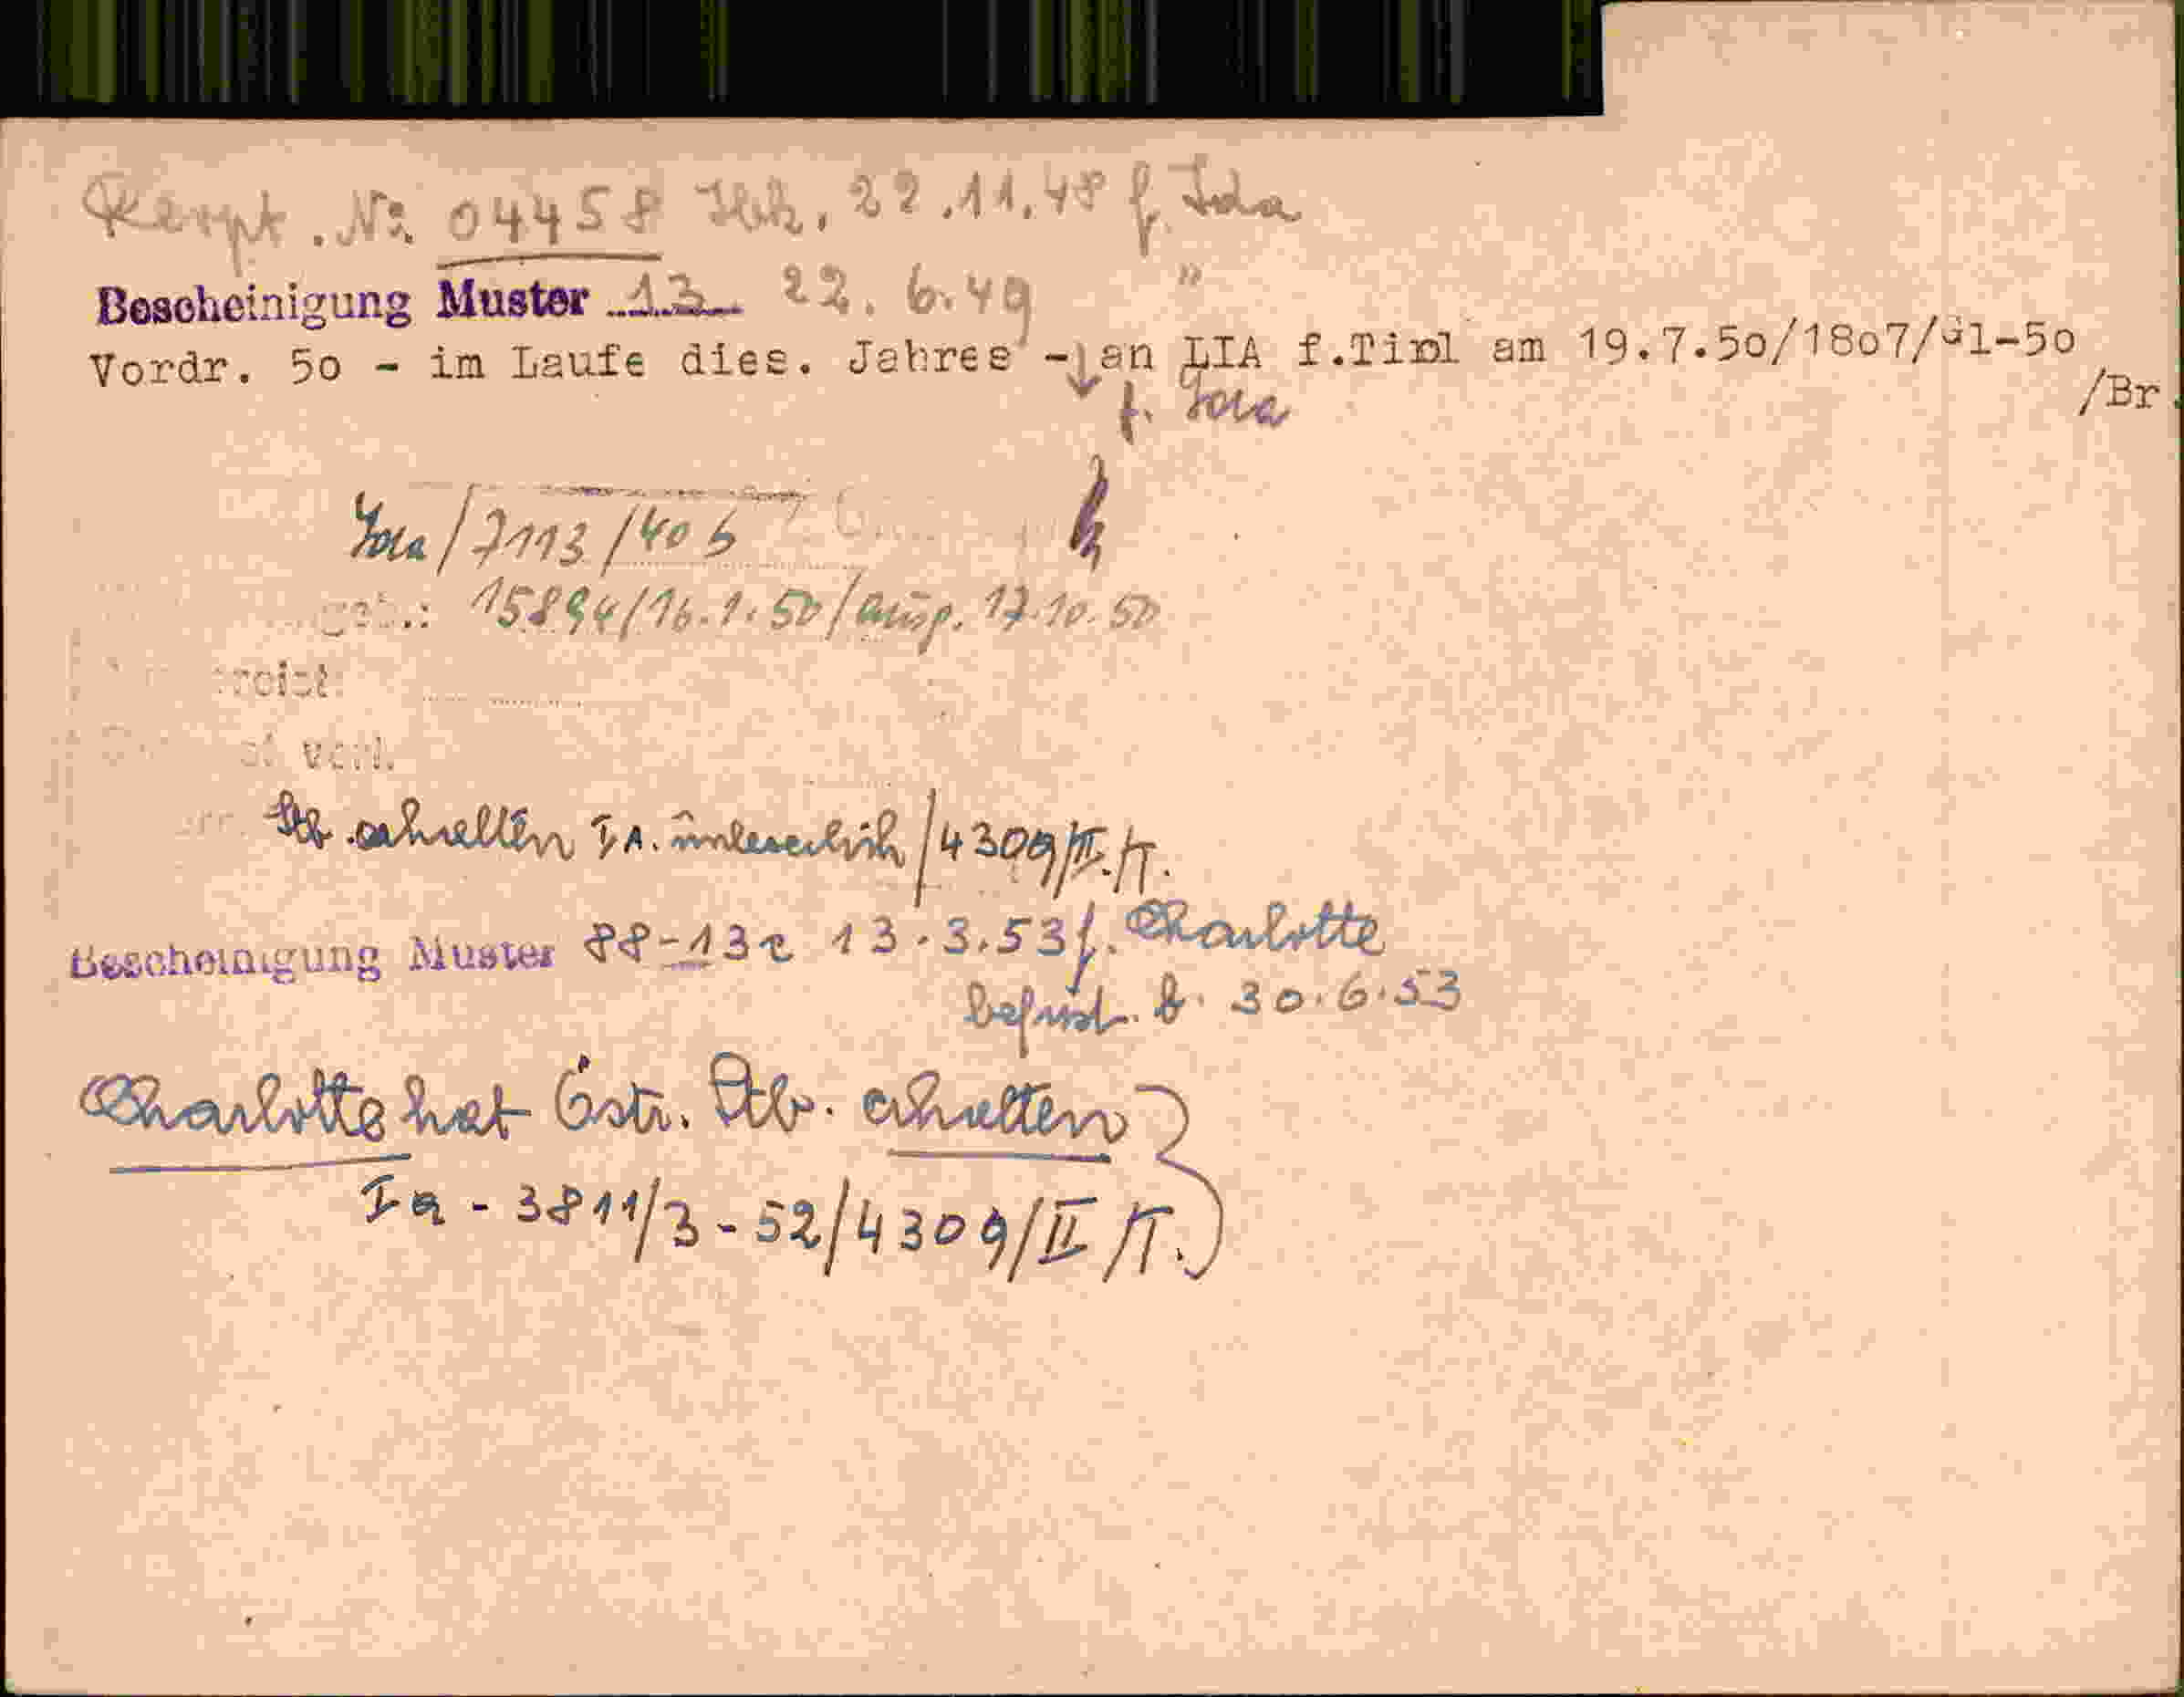 Rezept. Nr. 04458 22.11.48 f. Ida
Bescheinigung Muster 13 22. 6.49 "
Vordr. 50 - im Laufe dies. Jahres - an LIA f.Tirol am 19.7.50/1807/J1-50
/Br.
f. Ida
Ida/7113/40 b
15894/16.1.50/ausg. 17.10.50
reist
verl.
Stb. erhalten I A. unleserlich/4309/II./T.
Bescheinigung Muster 88-13c 13.3.53 f. Charlotte
befrist. b. 30.6.53
Charlotte hat Östr. Stb. erhalten
Ia - 3811/3 - 52/4309/II /T.)